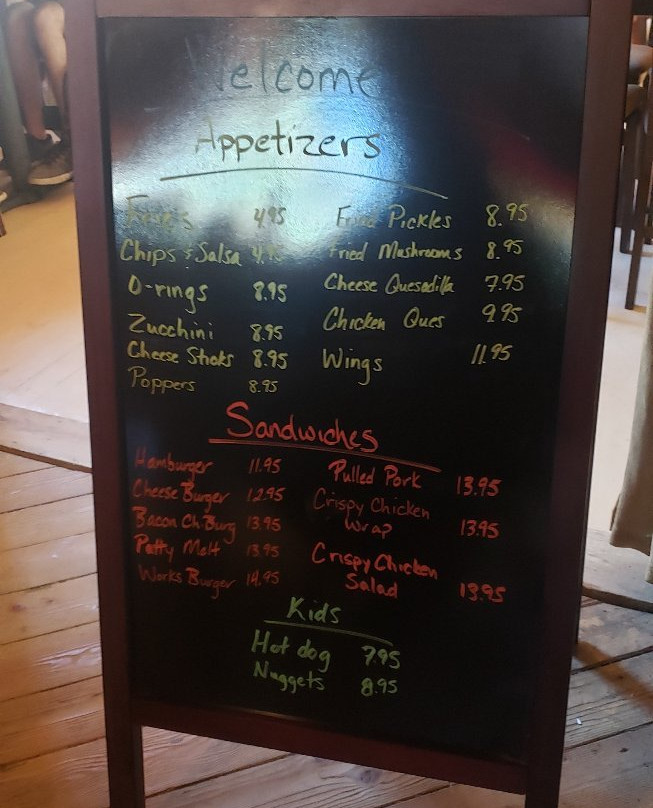 Welcome
Appetizers
Frie's 4.95
Chips & Salsa 4.95
O-rings 8.95
Zucchini 8.95
Cheese Sticks 8.95
Poppers 8.95
Fried Pickles 8.95
Fried Mushrooms 8.95
Cheese Quesadilla 7.95
Chicken Ques 9.95
Wings 11.95
Sandwiches
Hamburger 11.95
Cheese Burger 12.95
Bacon Ch Burg 13.95
Patty Melt 13.95
Works Burger 14.95
Pulled Pork 13.95
Crispy Chicken
Wrap 13.95
Crispy Chicken
Salad 13.95
Kids
Hot dog 7.95
Nuggets 8.95